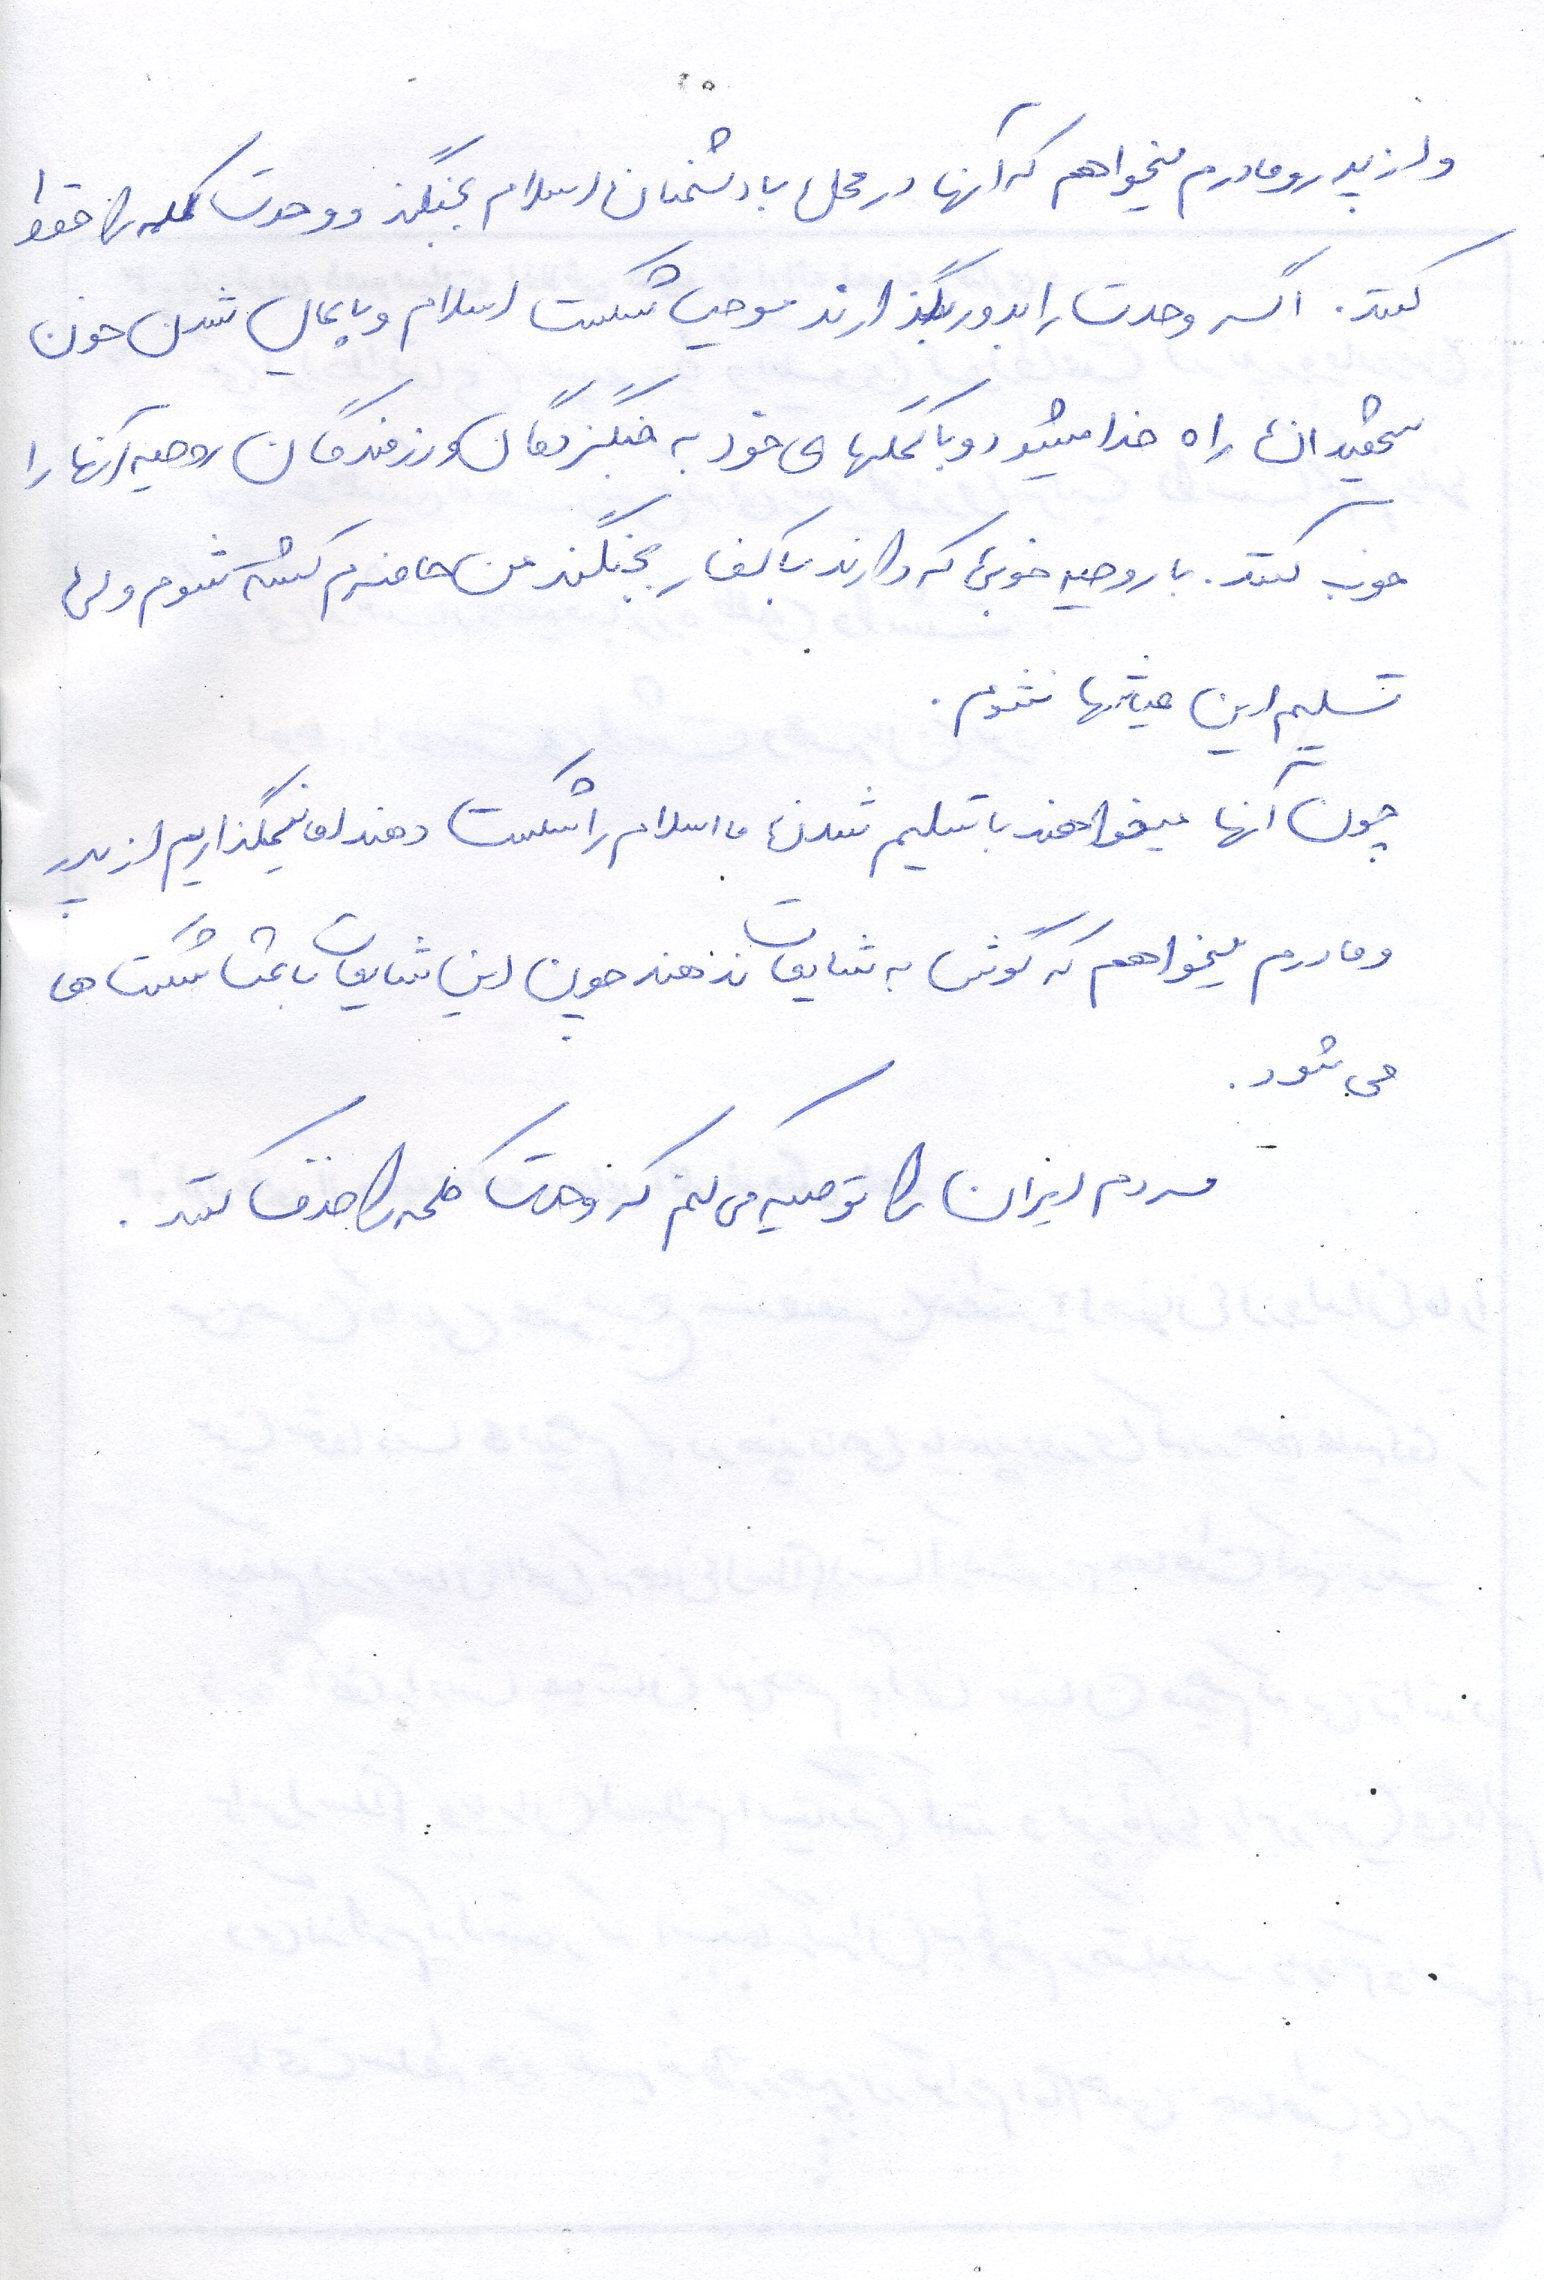 و از پدر و مادرم میخواهم که آنها در محل با دشمنان اسلام بجنگند و وحدت کلمه را حفظ
کنند. اگر وحدت را بدور بگذارند موجب شکست اسلام و پایمال شدن خون
شهیدان راه خدا میشود و با کمکهای خود به جنگزدگان و رزمندگان روحیه آنها را
خوب کنند. با روحیه خوبی که دارند با کفار بجنگند من حاضرم کشته شوم ولی
تسلیم این نشوم.
چون آنها میخواهند با تسلیم شدن ما اسلام را شکست دهند اما نمیگذاریم از پدر
و مادرم میخواهم که گوش به شایعات ندهند چون این شایعات باعث شکست ها
می شود.
مردم ایران را توصیه می کنم که وحدت کلمه را حفظ کنند.